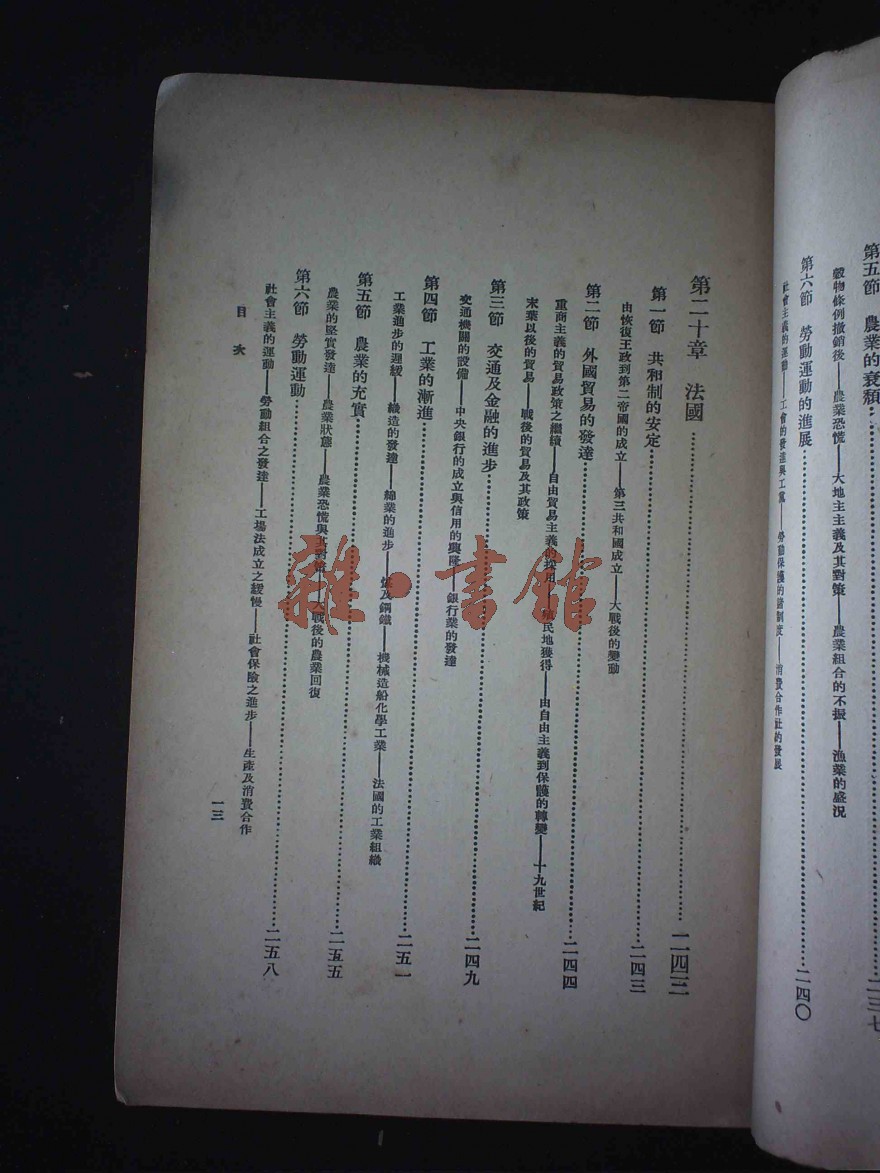 第五節　農業的衰頽……二三七
穀物條例撤銷後——農業恐慌——大地主主義及其對策——農業組合的不振——漁業的盛況
第六節　勞動運動的進展……二四〇
社會主義的運動——工會的發達與工黨——勞動保護的諸制度——消費合作社的發展
第二十章　法國……二四三
第一節　共和制的安定……二四三
由恢復王政到第二帝國的成立——第三共和國成立——大戰後的變動
第二節　外國貿易的發達……二四四
重商主義的貿易政策之繼續——自由貿易主義的採用——殖民地獲得——由自由主義到保護的轉變——十九世紀
末葉以後的貿易——戰後的貿易及其政策
第三節　交通及金融的進步……二四九
交通機關的設備——中央銀行的成立與信用的興隆——銀行業的發達
第四節　工業的漸進……二五一
工業進步的遲緩——織造的發達——綿業的進步——及鋼鐵——機械造船化學工業——法國的工業組織
第五節　農業的充實……二五五
農業的堅實發達——農業狀態——農業恐慌與其對策——大戰後的農業回復
第六節　勞動運動……二五八
社會主義的運動——勞動組合之發達——工場法成立之緩慢——社會保險之進步——生產及消費合作
目次
一三
雜·書館